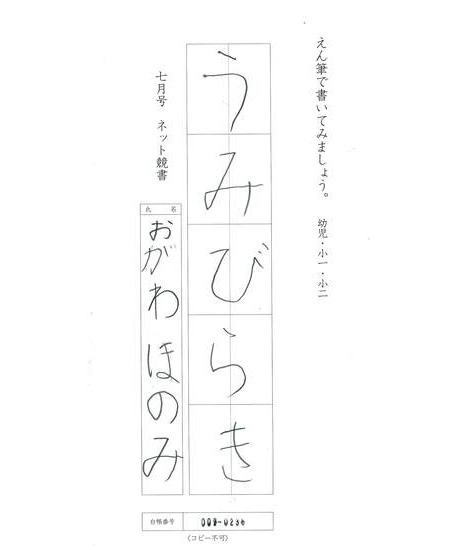 えん筆で書いてみましょう。 幼児・小一・小二
うみびらき
七月号 ネット競書
氏名
おがわほのみ
台帳番号 009-0236
(コピー不可)